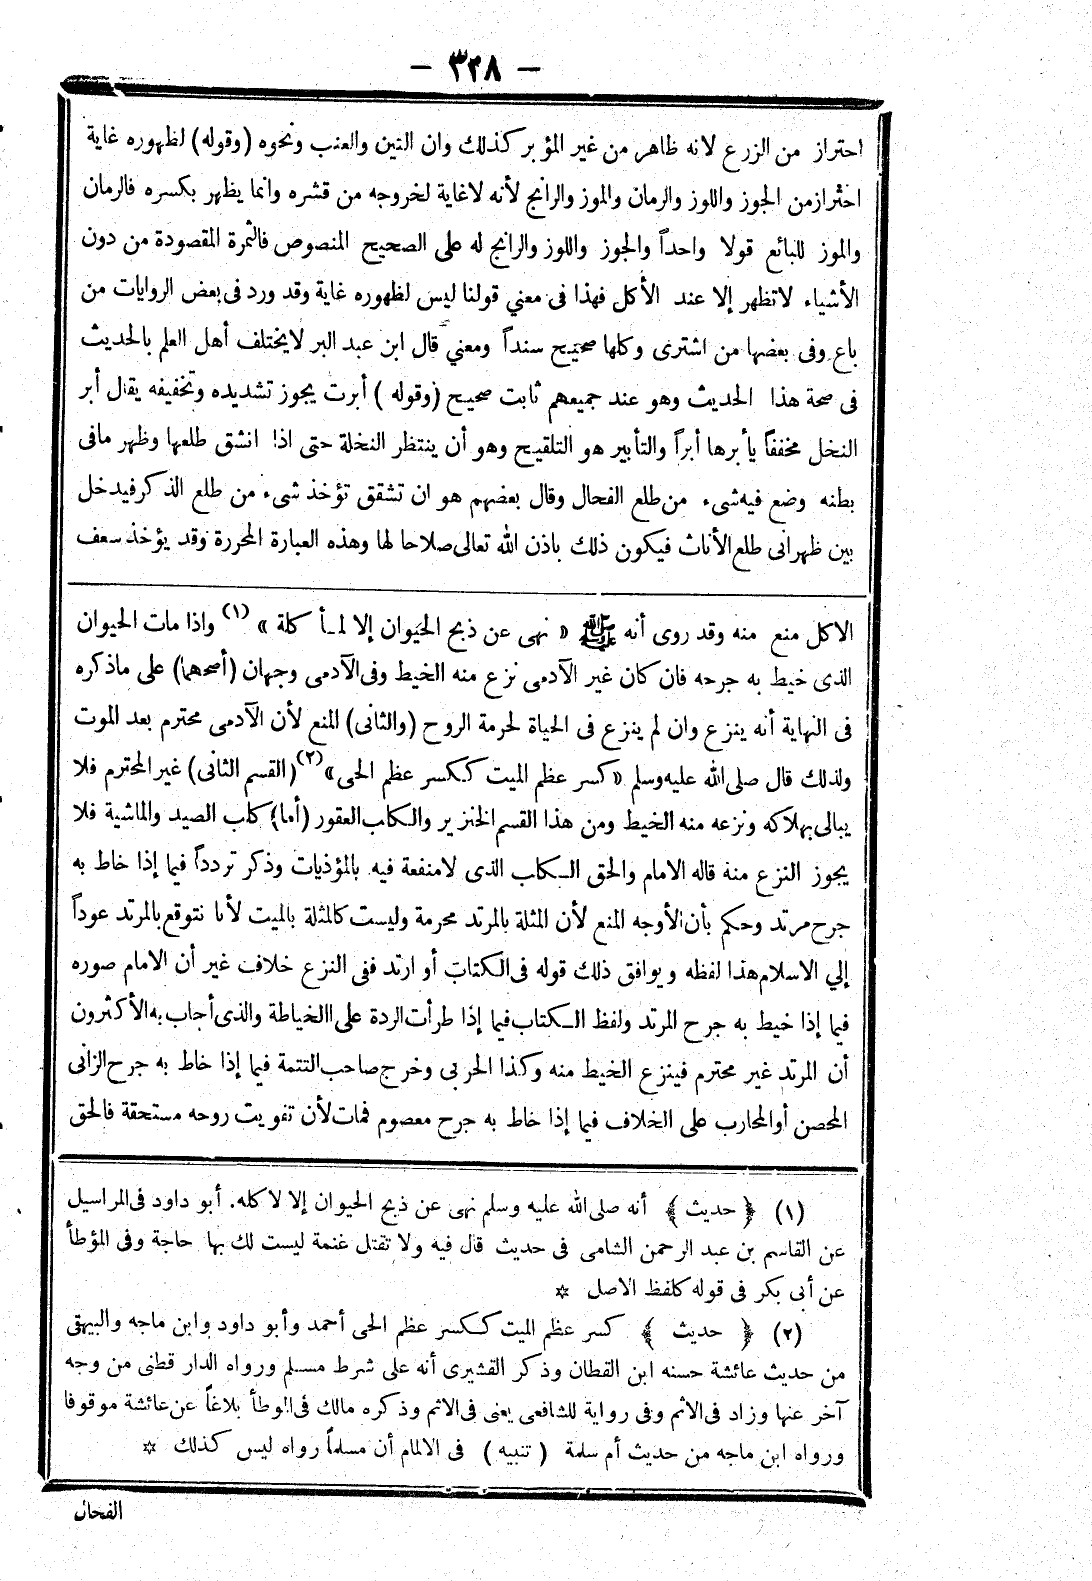 — ٣٢٨ —
احتراز من الزرع لانه ظاهر من غير المؤبر كذلك وان التين والعنب ونحوه (وقوله) لظهوره غاية
احترازمن الجوز واللوز والرمان والموز والرانج لأنه لاغاية لخروجه من قشره وانما يظهر بكسره فالرمان
والموز للبائع قولا واحداً والجوز واللوز والرانج له على الصحيح المنصوص فالثمرة المقصودة من دون
الأشياء لاتظهر إلا عند الأكل فهذا فى معني قولنا ليس لظهوره غاية وقد ورد فى بعض الروايات من
باع وفى بعضها من اشترى وكلها صحيح سنداً ومعني قال ابن عبد البر لايختلف أهل العلم بالحديث
فى صحة هذا الحديث وهو عند جميعهم ثابت صحيح (وقوله) أبرت يجوز تشديده وتخفيفه يقال أبر
النخل مخففاً يأبرها أبراً والتأبير هو التلقيح وهو أن ينتظر النخلة حتى اذا انشق طلعها وظهر مافى
بطنه وضع فيه شىء من طلع الفحال وقال بعضهم هو ان تشقق تؤخذ شىء من طلع الذكر فيدخل
بين ظهرانى طلع الأناث فيكون ذلك باذن الله تعالى صلاحا لها وهذه العبارة المحررة وقد يؤخذ سعف
الاكل منع منه وقد روى أنه ﷺ « نهى عن ذبح الحيوان إلا لمأ كلة » (١) واذا مات الحيوان
الذى خيط به جرحه فان كان غير الآدمى نزع منه الخيط وفى الآدمى وجهان (أصحهما) على ماذكره
فى النهاية أنه ينزع وان لم ينزع فى الحياة لحرمة الروح (والثانى) المنع لأن الآدمى محترم بعد الموت
ولذلك قال صلى الله عليه وسلم «كسر عظم الميت ككسر عظم الحى» (٢) (القسم الثانى) غير المحترم فلا
يبالى بهلاكه ونزعه منه الخيط ومن هذا القسم الخنزير والكلب العقور (أما) كلب الصيد والماشية فلا
يجوز النزع منه قاله الامام والحق الكلب الذى لامنفعة فيه بالمؤذيات وذكر تردداً فيما إذا خاط به
جرح مرتد وحكم بأن الأوجه المنع لأن المثلة بالمرتد محرمة وليست كالمثلة بالميت لأنا نتوقع بالمرتد عوداً
إلي الاسلام هذا لفظه ويوافق ذلك قوله فى الكتاب أو ارتد ففى النزع خلاف غير أن الامام صوره
فيما إذا خيط به جرح المرتد ولفظ الكتاب فيما إذا طرأت الردة على االخياطة والذى أجاب به الأكثرون
أن المرتد غير محترم فينزع الخيط منه وكذا الحربى وخرج صاحب التتمة فيما إذا خاط به جرح الزانى
المحصن أو المحارب على الخلاف فيما إذا خاط به جرح معصوم فمات لأن تفويت روحه مستحقة فالحق
(١) ﴿ حديث ﴾ أنه صلى الله عليه وسلم نهى عن ذبح الحيوان إلا لاكله. أبو داود فى المراسيل
عن القاسم بن عبد الرحمن الشامى فى حديث قال فيه ولا تقتل غنمة ليست لك بها حاجة وفى المؤطأ
عن أبى بكر فى قوله كلفظ الاصل ✡
(٢) ﴿ حديث ﴾ كسر عظم الميت ككسر عظم الحى أحمد وأبو داود وابن ماجه والبيهقى
من حديث عائشة حسنه ابن القطان وذكر القشيرى أنه على شرط مسلم ورواه الدار قطنى من وجه
آخر عنها وزاد فى الاثم وفى رواية للشافعى يعنى فى الاثم وذكره مالك فى الوطأ بلاغاً عن عائشة موقوفا
ورواه ابن ماجه من حديث أم سلمة ( تنبيه ) فى الالمام أن مسلماً رواه ليس كذلك ✡
الفحال